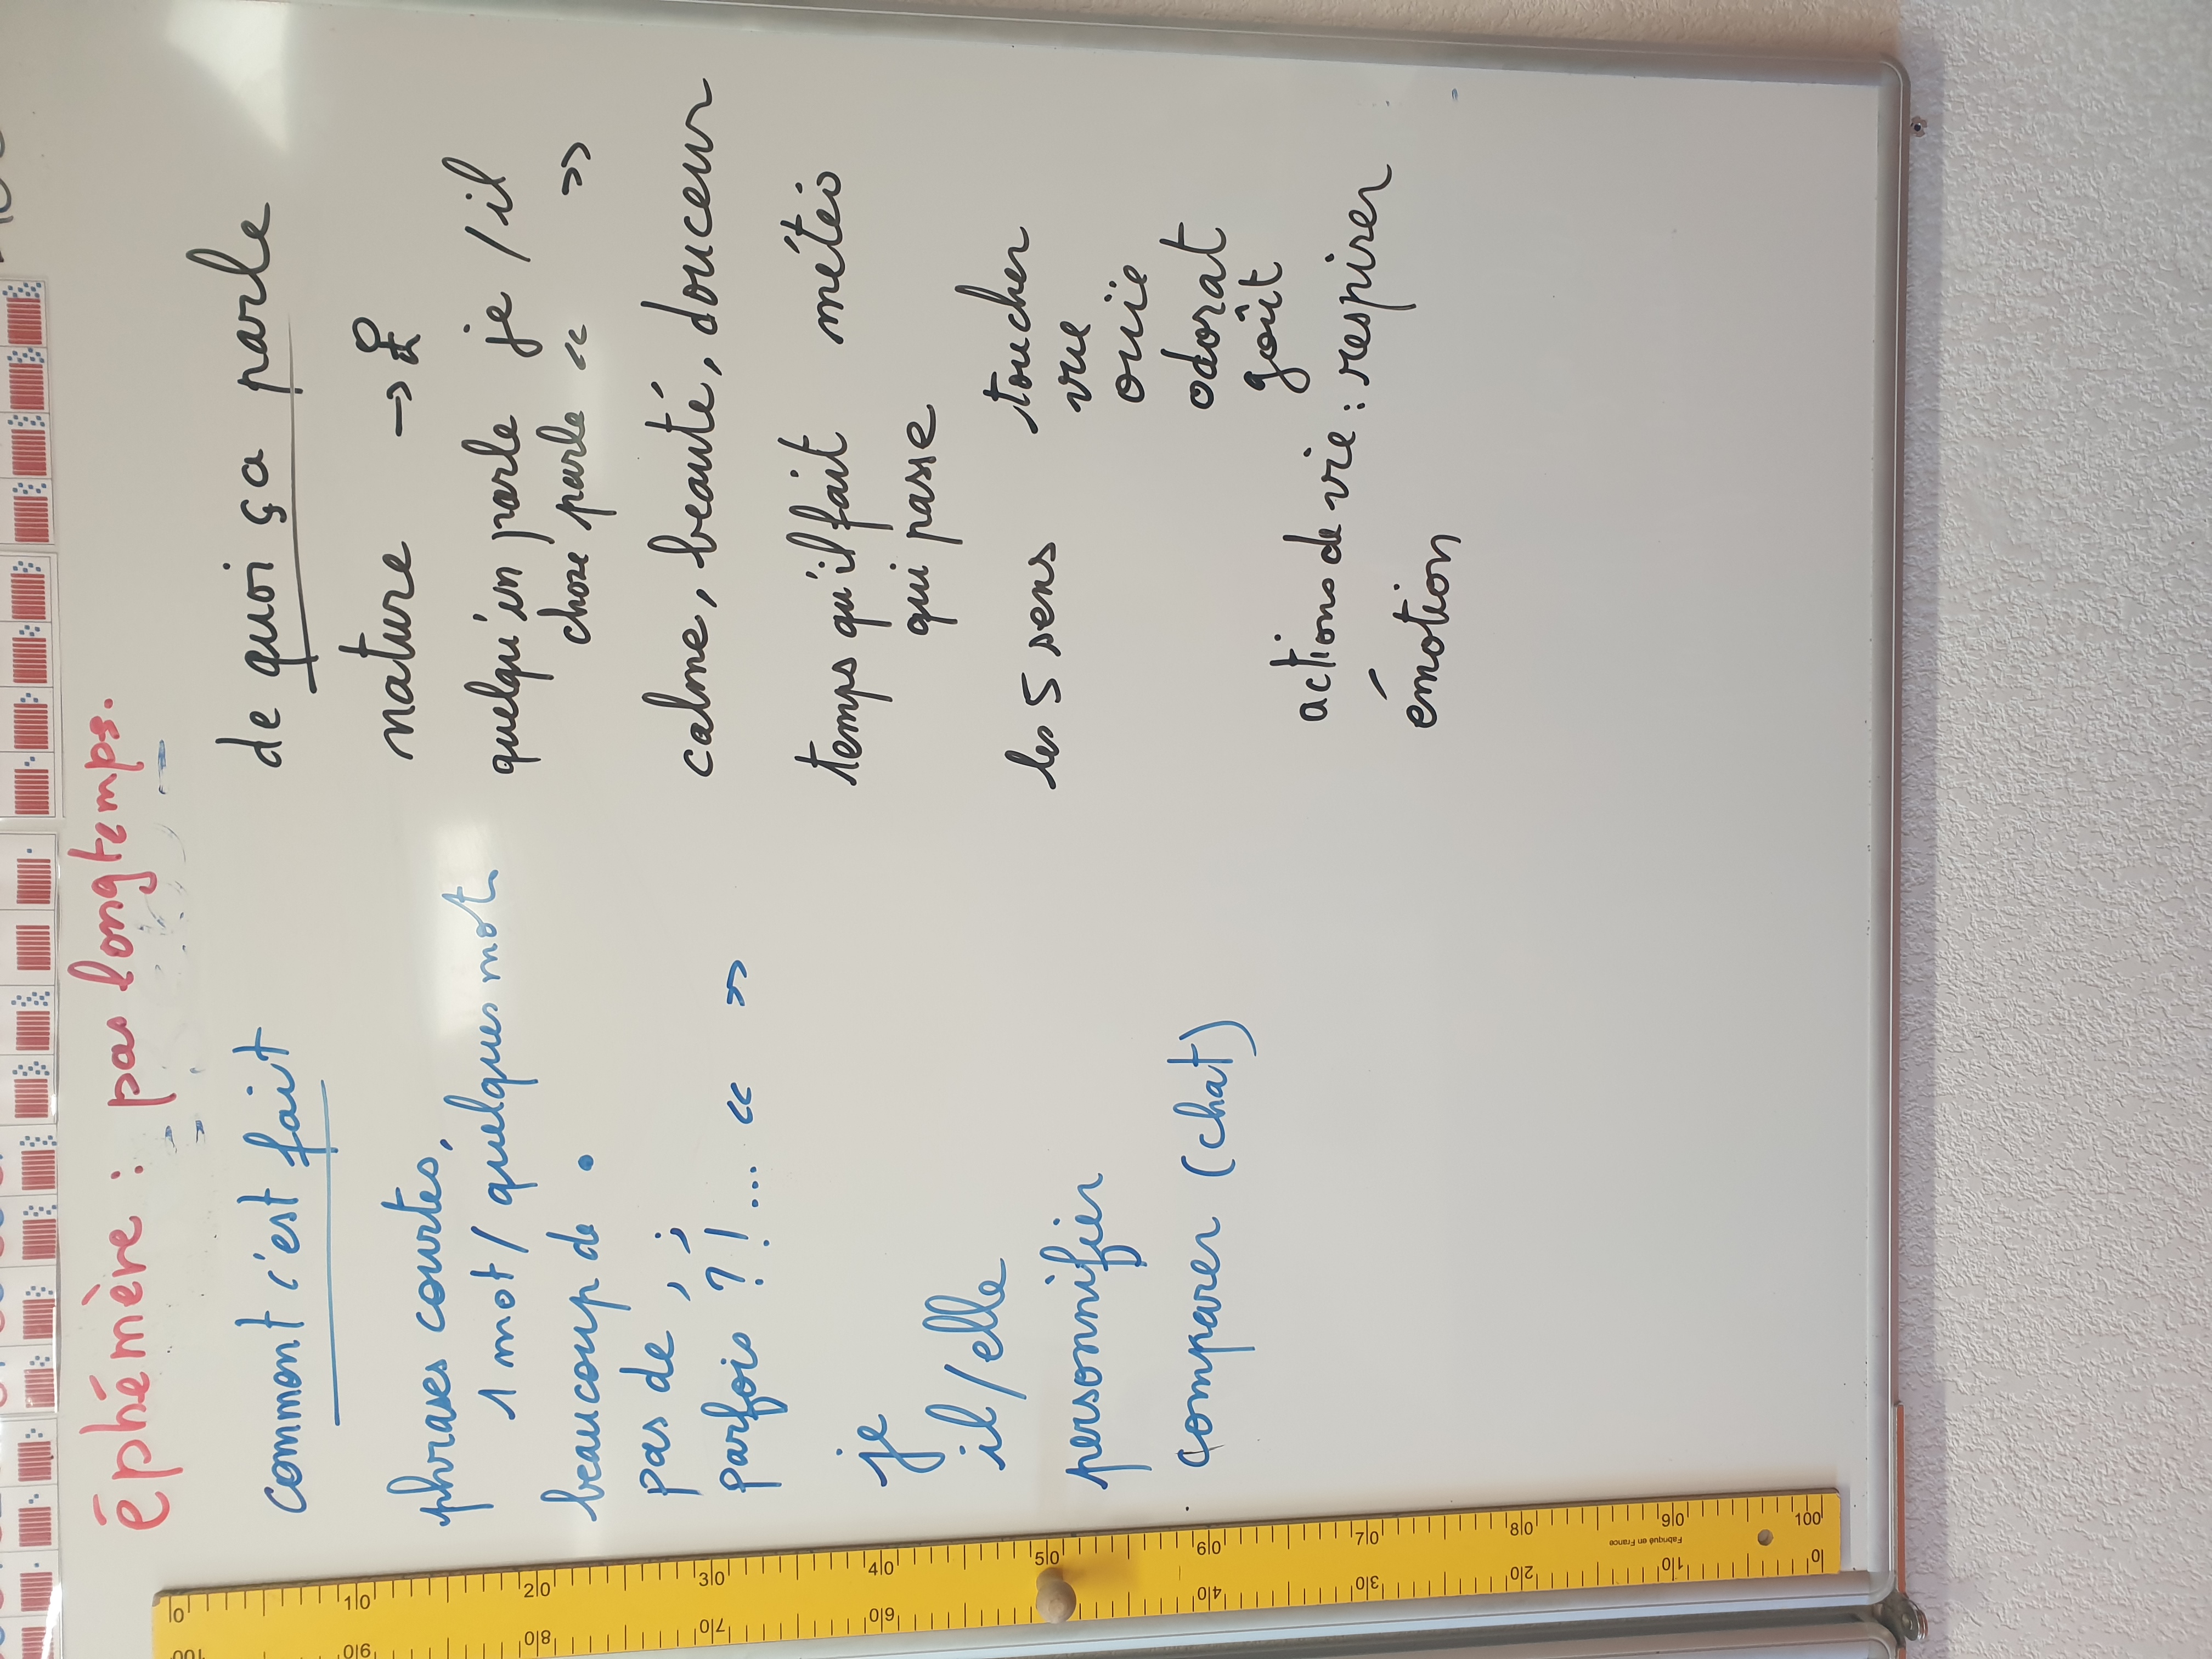 éphémère : pas longtemps.
comment c'est fait
phrases courtes,
1 mot / quelques mot
beaucoup de .
pas de , ;
parfois ? ! ... « »
je
il / elle
personnifier
comparer (chat)
de quoi ça parle
nature →
quelqu'un parle je / il
chose parle « »
calme, beauté, douceur
temps qu'il fait météo
qui passe
les 5 sens toucher
vue
ouïe
odorat
goût
actions de vie : respirer
émotion
0 10 20 30 40 50 60 70 80 90 100
Fabriqué en France
100 90 80 70 60 40 30 20 10 0